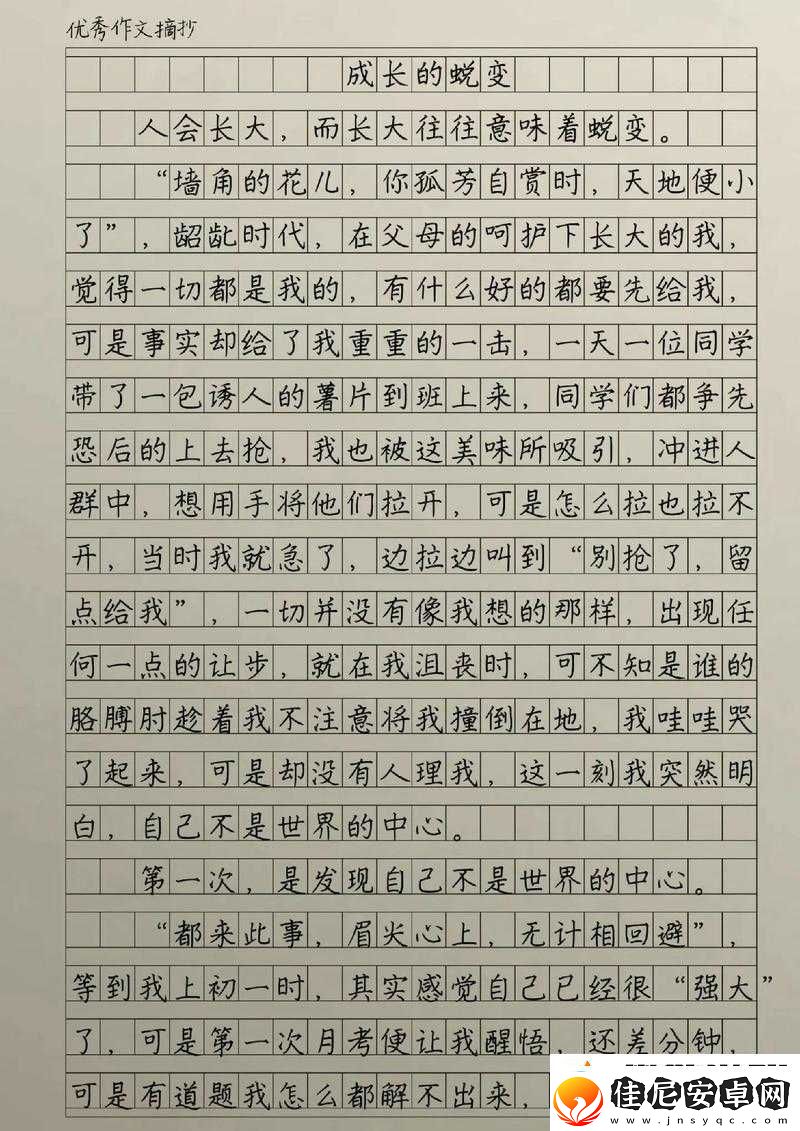 优秀作文摘抄
成长的蜕变
人会长大，而长大往往意味着蜕变。
“墙角的花儿，你孤芳自赏时，天地便小
了”，龆龀时代，在父母的呵护下长大的我，
觉得一切都是我的，有什么好的都要先给我，
可是事实却给了我重重的一击，一天一位同学
带了一包诱人的薯片到班上来，同学们都争先
恐后的上去抢，我也被这美味所吸引，冲进人
群中，想用手将他们拉开，可是怎么拉也拉不
开，当时我就急了，边拉边叫到“别抢了，留
点给我”，一切并没有像我想的那样，出现任
何一点的让步，就在我沮丧时，可不知是谁的
胳膊肘趁着我不注意将我撞倒在地，我哇哇哭
了起来，可是却没有人理我，这一刻我突然明
白，自己不是世界的中心。
第一次，是发现自己不是世界的中心。
“都来此事，眉尖心上，无计相回避”，
等到我上初一时，其实感觉自己已经很“强大”
了，可是第一次月考便让我醒悟，还差分钟，
可是有道题我怎么都解不出来，
佳尼安卓网
www.jnsyqc.com